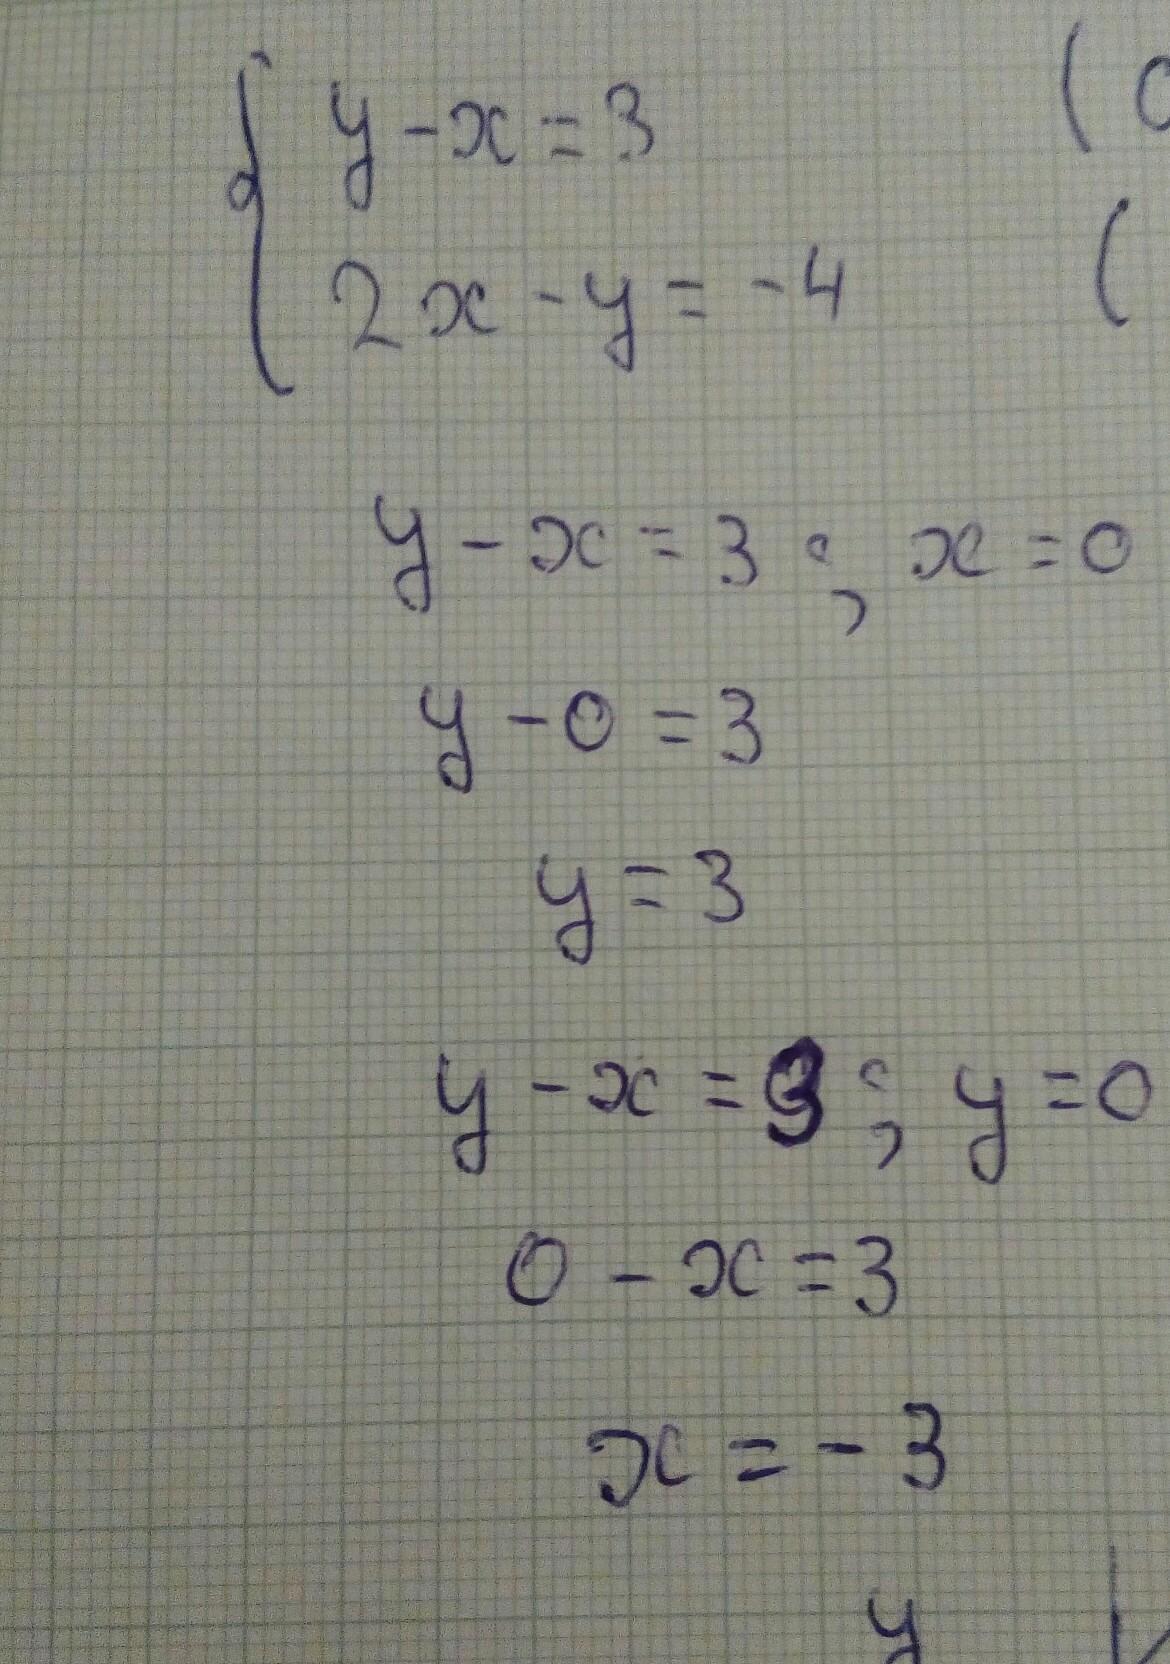 { y - x = 3 (
2x - y = -4 (
y - x = 3 ; x = 0
y - 0 = 3
y = 3
y - x = 3 ; y = 0
0 - x = 3
x = - 3
y